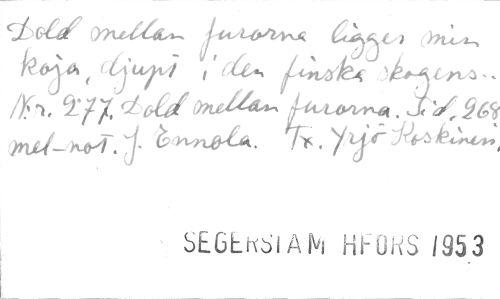 Dold mellan furorna ligger min
koja, djupt i den finska skogens..
Nr. 277. Dold mellan furorna. Sid. 268
mel-not. J. Ennola. Tx. Yrjö Koskinen.
SEGERSTAM HFORS 1953